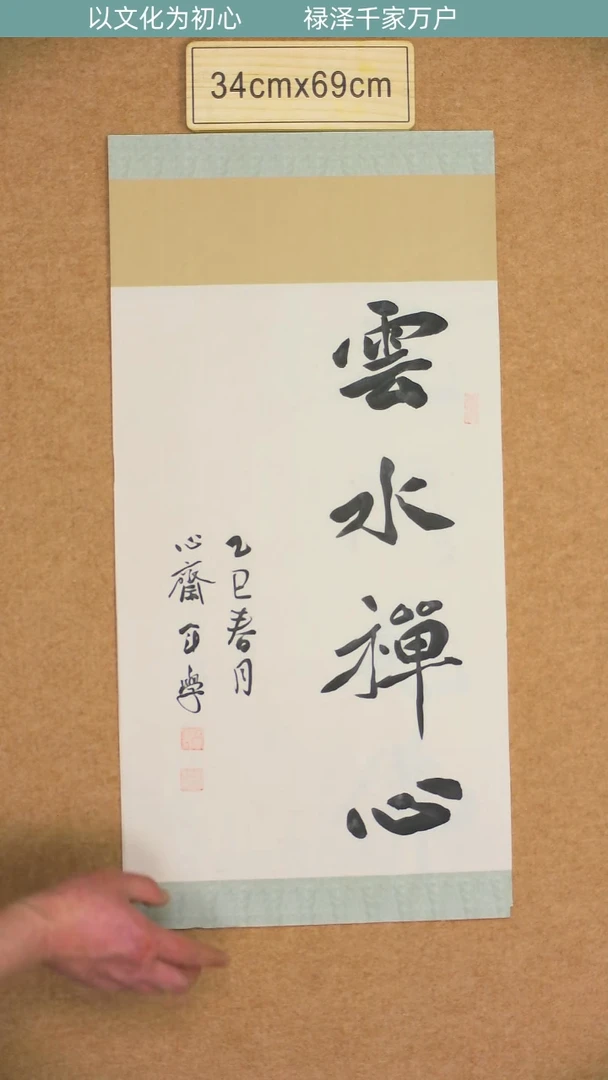 以文化为初心 禄泽千家万户
34cmx69cm
雲水禪心
乙巳春月
心齋